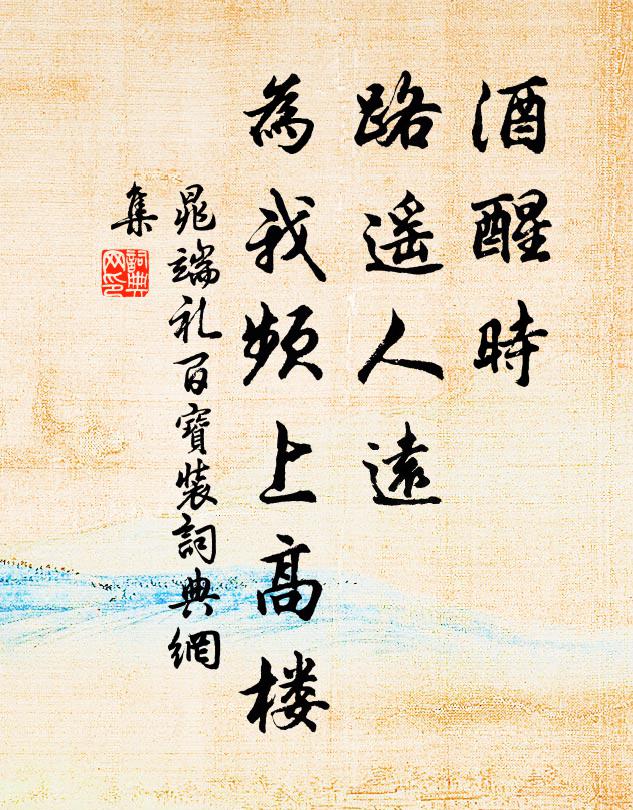 酒醒時
路遥人遠
為我頻上高楼
晁端礼百寶裝詞典網
集
詞典
网印